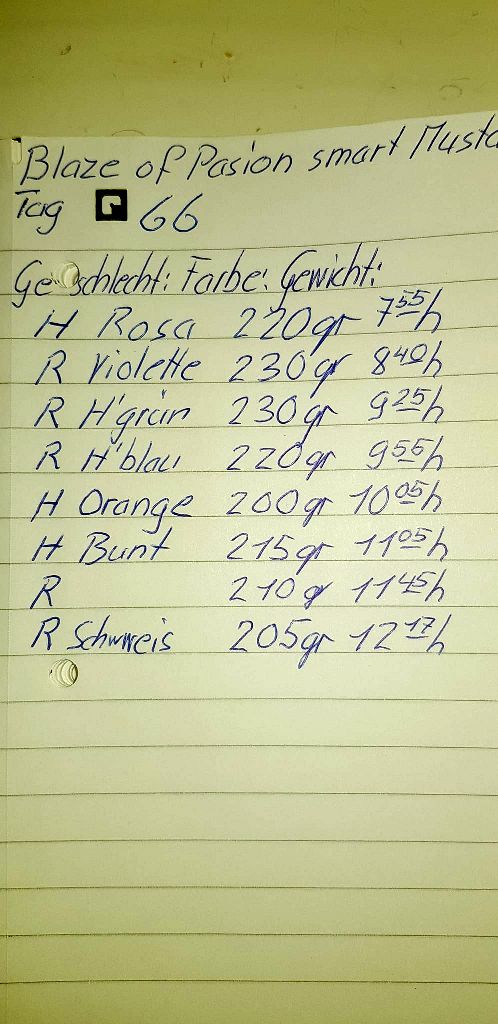 Blaze of Pasion smart Musta
Tag 66
Geschlecht: Farbe: Gewicht:
H Rosa 220gr 7 55 h
R Violette 230gr 8 40 h
R H'grün 230gr 9 25 h
R H'blau 220gr 9 55 h
H Orange 200gr 10 05 h
H Bunt 215gr 11 05 h
R 210gr 11 45 h
R Schwweis 205gr 12 17 h